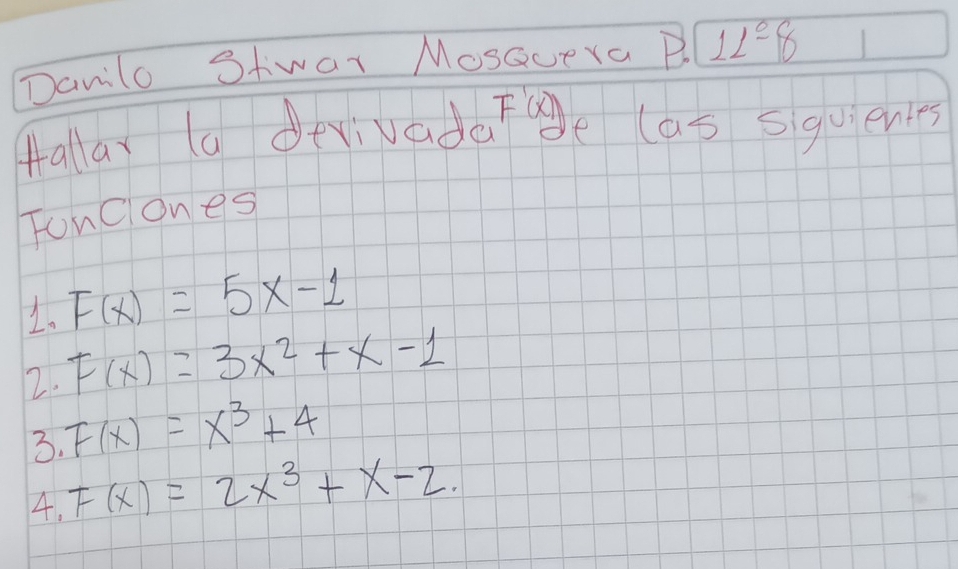 Danilo Stiwar Mosquera P. 11°8
Hallar la derivada F'(x) de las siguientes
Funciones
1. F(x) = 5x-1
2. F(x) = 3x² + x - 1
3. F(x) = x³ + 4
4. F(x) = 2x³ + x - 2.